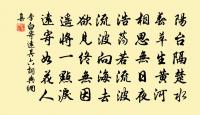 陽台隔楚水
春草生黃河
相思無日夜
浩蕩若流波
流波向海去
欲見終無因
遥將一點淚
遠寄如花人
李白寄遠其六詞典網
集